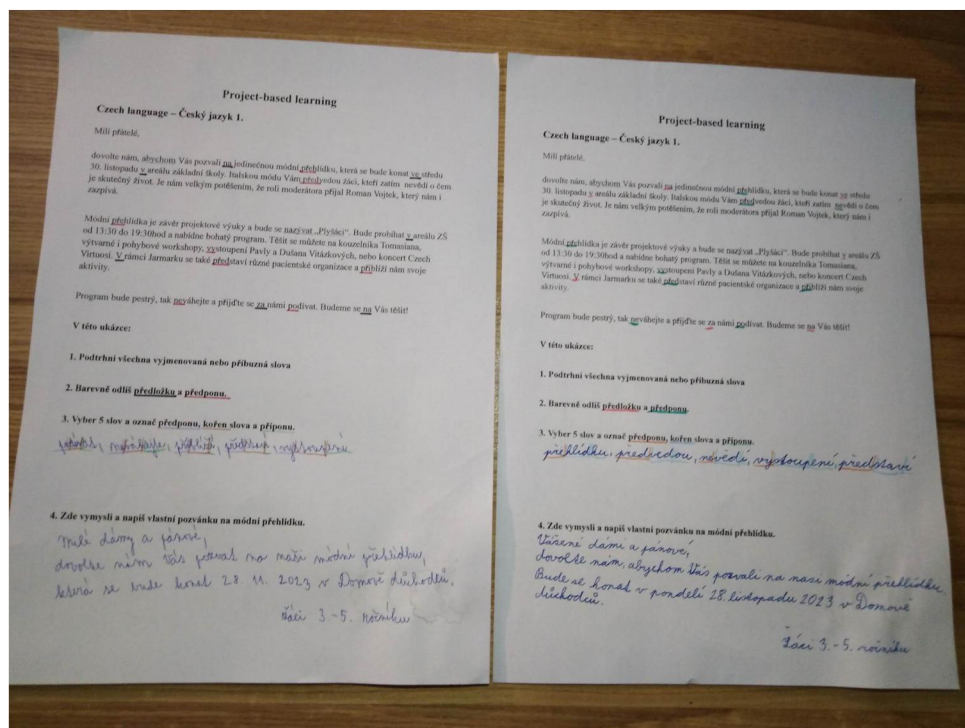 Project-based learning
Czech language – Český jazyk 1.
Milí přátelé,
dovolte nám, abychom Vás pozvali na jedinečnou módní přehlídku, která se bude konat ve středu
30. listopadu v areálu základní školy. Italskou módu Vám předvedou žáci, kteří zatím nevědí o čem
je skutečný život. Je nám velkým potěšením, že roli moderátora přijal Roman Vojtek, který nám i
zazpívá.
Módní přehlídka je závěr projektové výuky a bude se nazývat „Plyšáci“. Bude probíhat v areálu ZŠ
od 13:30 do 19:30hod a nabídne bohatý program. Těšit se můžete na kouzelníka Tomasiana,
výtvarné i pohybové workshopy, vystoupení Pavly a Dušana Vitázkových, nebo koncert Czech
Virtuosi. V rámci Jarmarku se také představí různé pacientské organizace a přiblíží nám svoje
aktivity.
Program bude pestrý, tak neváhejte a přijďte se za námi podívat. Budeme se na Vás těšit!
V této ukázce:
1. Podtrhni všechna vyjmenovaná nebo příbuzná slova
2. Barevně odliš předložku a předponu.
3. Vyber 5 slov a označ předponu, kořen slova a příponu.
4. Zde vymysli a napiš vlastní pozvánku na módní přehlídku.
Milé dámy a pánové,
dovolte nám Vás pozvat na naši módní přehlídku,
která se bude konat 28. 11. 2023 v Domově důchodců.
Žáci 3.-5. ročníku
Project-based learning
Czech language – Český jazyk 1.
Milí přátelé,
dovolte nám, abychom Vás pozvali na jedinečnou módní přehlídku, která se bude konat ve středu
30. listopadu v areálu základní školy. Italskou módu Vám předvedou žáci, kteří zatím nevědí o čem
je skutečný život. Je nám velkým potěšením, že roli moderátora přijal Roman Vojtek, který nám i
zazpívá.
Módní přehlídka je závěr projektové výuky a bude se nazývat „Plyšáci“. Bude probíhat v areálu ZŠ
od 13:30 do 19:30hod a nabídne bohatý program. Těšit se můžete na kouzelníka Tomasiana,
výtvarné i pohybové workshopy, vystoupení Pavly a Dušana Vitázkových, nebo koncert Czech
Virtuosi. V rámci Jarmarku se také představí různé pacientské organizace a přiblíží nám svoje
aktivity.
Program bude pestrý, tak neváhejte a přijďte se za námi podívat. Budeme se na Vás těšit!
V této ukázce:
1. Podtrhni všechna vyjmenovaná nebo příbuzná slova
2. Barevně odliš předložku a předponu.
3. Vyber 5 slov a označ předponu, kořen slova a příponu.
přehlídku, předvedou, nevědí, vystoupení, představí
4. Zde vymysli a napiš vlastní pozvánku na módní přehlídku.
Vážené dámi a pánové,
dovolte nam, abychom Vás pozvali na nasi módní přehlídku.
Bude se konat v pondelí 28. listopadu 2023 v Domově
důchodců.
Žáci 3.-5. ročníku